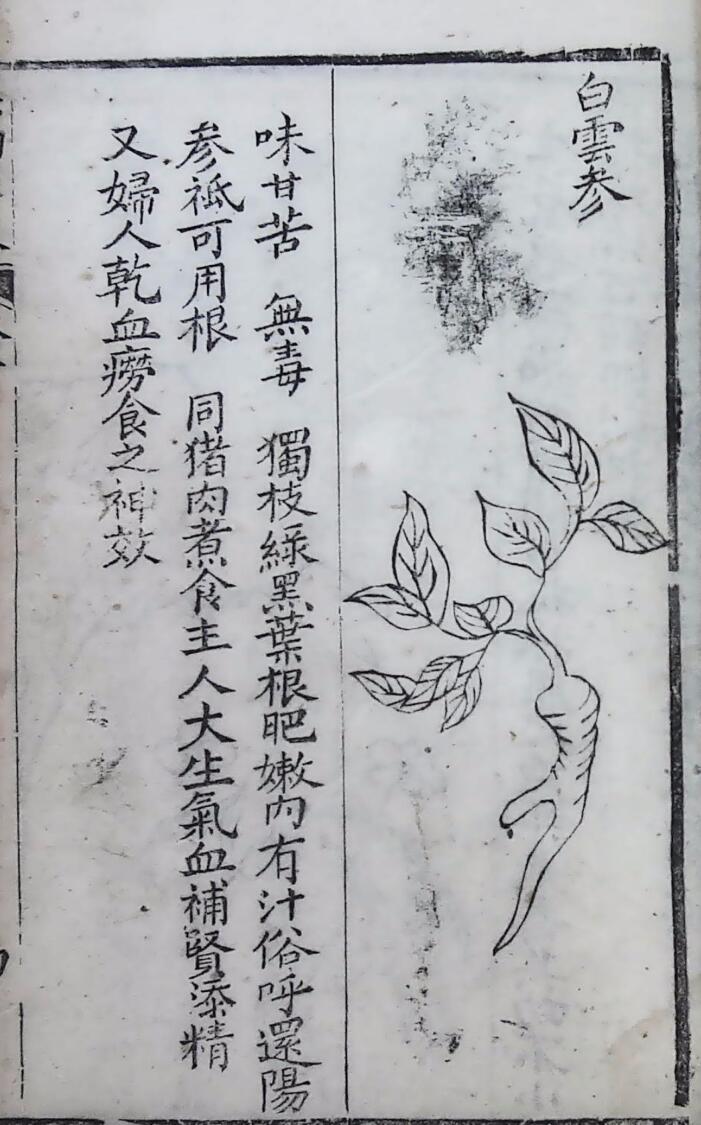 白雲参
味甘苦 無毒 獨枝綠黑葉根肥嫩內有汁俗呼還陽
参祇可用根 同猪肉煮食主人大生氣血補賢添精
又婦人乾血癆食之神效